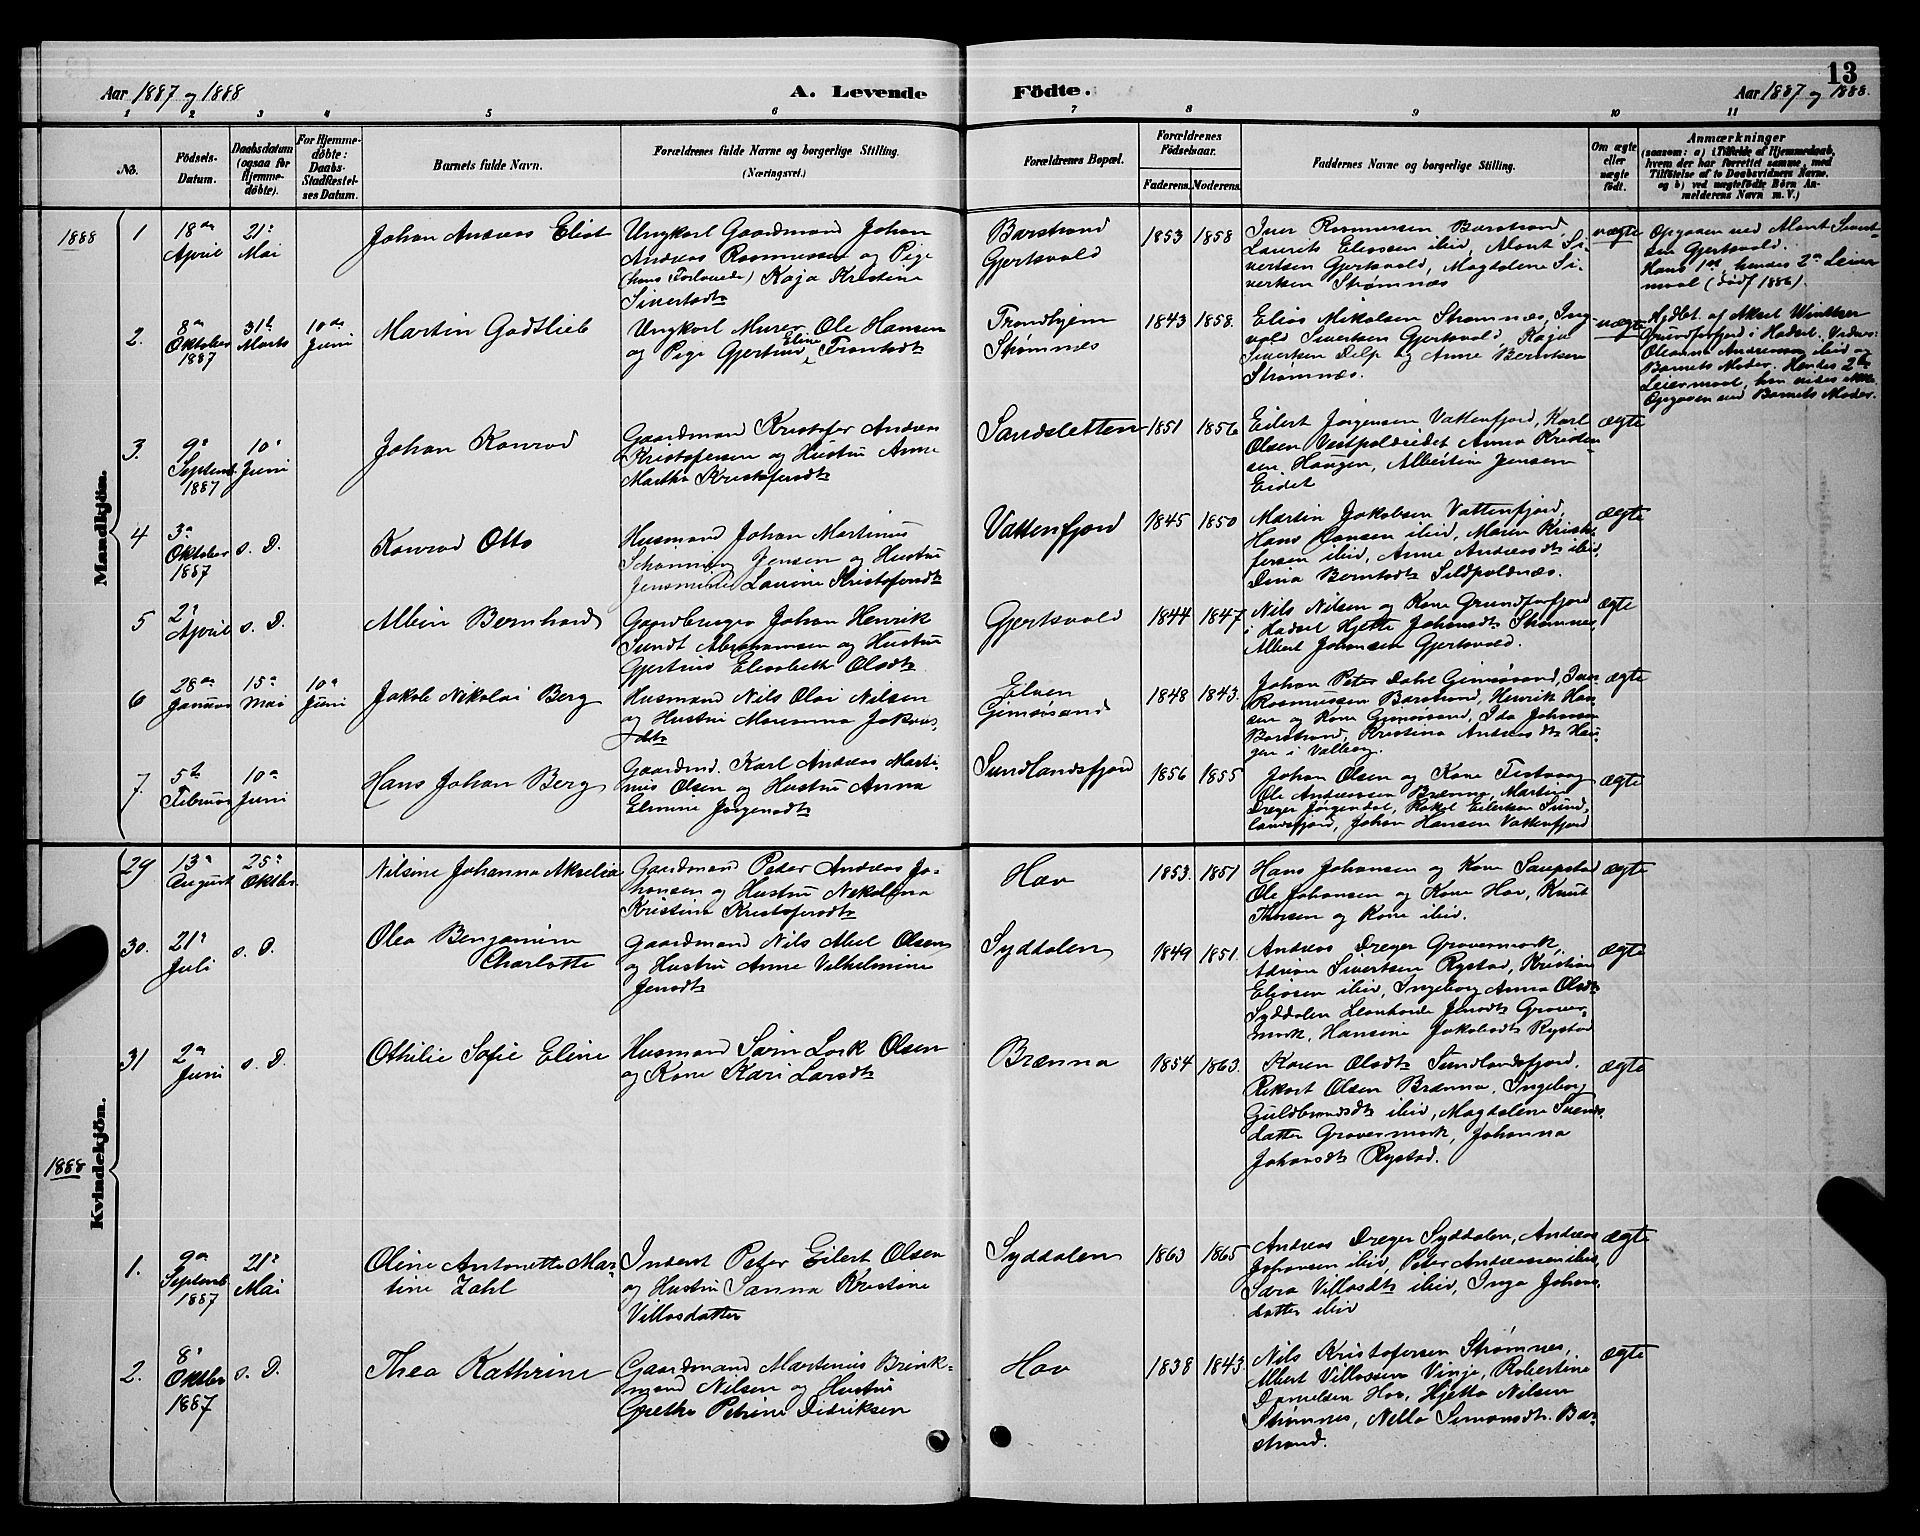 13
Aar 1887 og 1888
A. Levende Födte.
Aar 1887 og 1888.
1 2 3 4 5 6 7 8 9 10 11
No.
Födsels-
Datum.
Daabsdatum
(ogsaa for
Hjemme-
döbte).
For Hjemme-
döbte:
Daabs-
Stadfestel-
ses Datum.
Barnets fulde Navn.
Forældrenes fulde Navne og borgerlige Stilling.
(Næringsvei.)
Forældrenes Bopæl.
Forældrenes
Födselsaar.
Faderens.
Moderens.
Faddernes Navne og borgerlige Stilling.
Om ægte
eller
uægte
födt.
Anmærkninger
(saasom: a) i Tilfælde af Hjemmedaab,
hvem der har forrettet samme, med
Tilföielse af to Daabsvidners Navne,
og b) ved uægtefödte Börn An-
melderens Navn m. V.)
Mandkjön.
1888
1
18de
April
21'
Mai
Johan Andreas Eliot
Ungkarl Gaardmand Johan
Andreas Rasmussen og Pige
(hans Forlovede) Kaja Kristine
Sivertsdtr
Barstrand
Gjertsvold
1853
1858
Iver Rasmussen Barstrand
Laurits Eliassen ibid, Mont Si-
vertsen Gjertsvold, Magdalene Si-
vertsen Strømnæs
uægte
Opgaven ved Mont Sivert-
sen Gjertsvold.
Hans 1ste, hendes 2de Leier-
maal (født 1886).
2.
8de
Oktober
1887
31te
Marts
10de
Juni
Martin Godtlieb
Ungkarl Murer Ole Hansen
og Pige Gjertine Eline Trontsdtr
Trondhjem
Strømnæs
1843
1858.
Elias Mikalsen Strømnæs, Ing-
vald Sivertsen Gjertsvold, Kaja
Sivertsen Delp og Anne Berntsen
Strømnæs.
uægte
Hjdbt. af Akel Winther
Grundforfjord i Hadsel. Vidner:
Oleanna Andreasen ibid og
Barnets Moder. Hendes 2det
Leiermaal,
Opgaven ved Barnets Moder.
3.
9'
Septemb.
1887
10'
Juni
Johan Konrad
Gaardmand Kristofer Andreas
Kristofersen og Hustru Anne
Martha Kristofersdtr
Sandsletten
1851
1856
Eilert Jørgensen Vattenfjord, Karl
Olsen Vestpoldeidet Anna Kristen-
sen Haugen, Albertine Jensen
Eidet
ægte
4
3'
Oktober
1887
s. D.
Konrad Otto
Husmand Johan Martinus
Schønning Jensen og Hustru
Jensmine Laurine Kristofersdtr
Vattenfjord
1845
1850
Martin Jakobsen Vattenfjord,
Hans Hansen ibid, Maren Kristo-
fersen ibid, Anne Andreasdtr ibid,
Dina Berntsdtr Sildpoldnæs.
ægte
5
2'
April
s. D.
Albin Bernhard
Gaardbruger Johan Henrik
Sundt Abrahamsen og Hustru
Gjertine Elisabeth Olsdtr
Gjertsvold
1844
1847
Nils Nilsen og Kone Grundforfjord
i Hadsel Hjette Johansdtr Strømnes,
Albert Johansen Gjertsvold.
ægte
6
28de
Januar
15de
Mai
10de
Juni
Jakob Nikolai Berg
Husmand Nils Olai Nilsen
og Hustru Marianna Jakobs-
dtr
Elven
Gimsøsand
1848
1843.
Johan Peter Dahl Gimsøsand, Iver
Rasmussen Barstrand, Henrik Han-
sen og Kone Gimsøsand, Ida Johansen
Barstrand, Kristina Andreasdtr Hau-
gen i Valberg.
ægte
7.
5te
Februar
10de
Juni
Hans Johan Berg
Gaardmd. Karl Andreas Marti-
nus Olsen og Hustru Anna
Elmine Jørgensdtr
Sundlandsfjord
1856
1855
Johan Olsen og Kone Festvaag
Ole Andreassen Brænna, Martin
Dreyer Jørgendal, Rakel Eilertsen Sund-
landsfjord, Johan Hansen Vattenfjord
ægte
Kvindekjön.
29
13de
August
25'
Oktbr.
Nilsine Johanna Akselia
Gaardmand Peter Andreas Jo-
hansen og Hustru Nikoline
Kristine Kristofersdtr
Hov
1853.
1851
Hans Johansen og Kone Saupstad
Ole Johansen og Kone Hov, Knut
Thorsen og Kone ibid.
ægte
30.
21'
Juli
s. D.
Olea Benjamine
Charlotte
Gaardmand Nils Abel Olsen
og Hustru Anne Vilhelmine
Jensdtr
Syddalen
1849
1851.
Andreas Dreyer Gravermark,
Adrian Sivertsen Rystad, Kristian
Eliasen ibid, Ingeborg Anna Olsdtr
Syddalen Leonharde Jensdtr Graver-
mark, Hansine Jakobsdtr Rystad
ægte
31
2de
Juni
s. D.
Othilie Sofie Eline
Husmand Sørin Lork Olsen
og Kone Kari Larsdtr
Brænna
1854
1863.
Karen Olsdtr Sundlandsfjord.
Rikart Olsen Brænna, Ingeborg
Guldbrandsdtr ibid, Magdalene Svends-
datter Gravermark, Johanna
Johansdtr Rystad.
ægte
1888
1.
9de
Septemb.
1887
21'
Mai
Oline Antonette Mar-
tine Zahl
Inderst Peter Eilert Olsen
og Hustru Sanna Kristine
Villasdatter
Syddalen
1863
1865
Andreas Dreyer Syddalen, Andreas
Johansen ibid, Peter Andreassen ibid,
Sara Villasdtr ibid, Inga Johans-
datter ibid
ægte
2.
8'
Oktbr
1887
s. D.
Thea Kathrine
Gaardmand Martinus Brink-
mand Nilsen og Hustru
Grethe Petrine Didriksen
Hov
1838
1843.
Nils Kristofersen Strømnes,
Albert Villassen Vinje, Robertine
Danielsen Hov, Hjette Nilsen
Strømnes, Nella Simonsdtr. Bar-
strand.
ægte